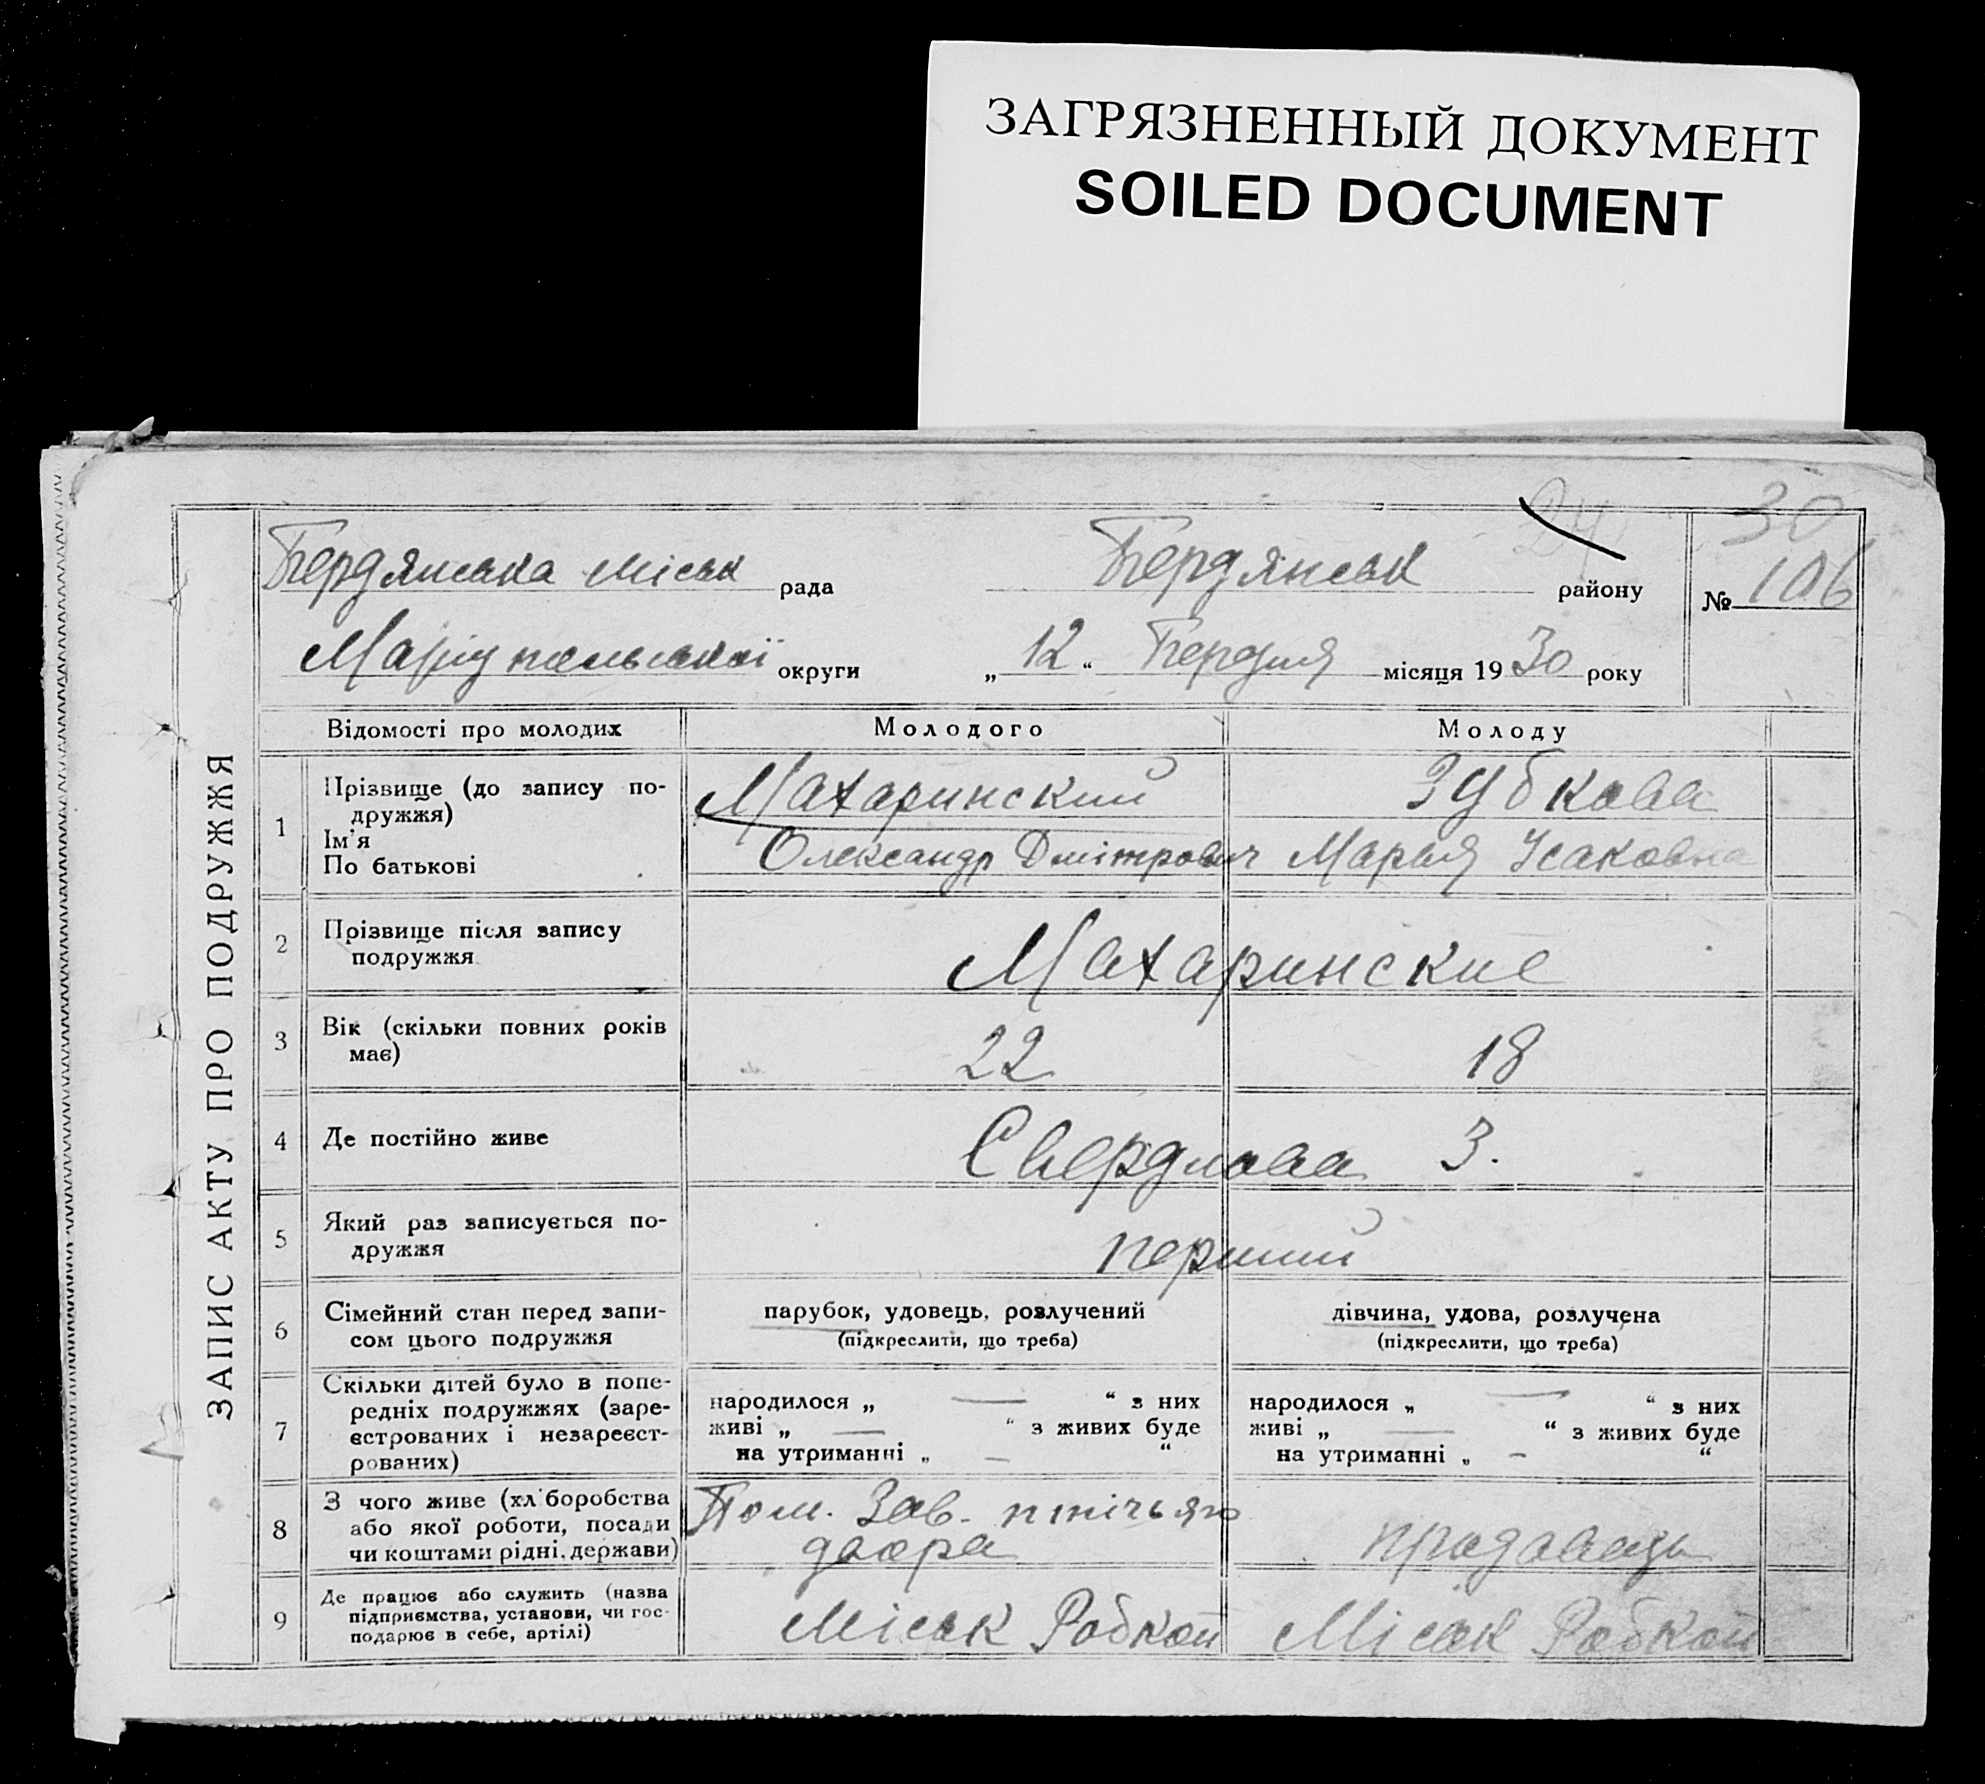 ЗАГРЯЗНЕННЫЙ ДОКУМЕНТ
SOILED DOCUMENT
24
30
Бердянська міськ рада Бердянськ району № 106
Маріупольської округи „12“ Березня місяця 1930 року
ЗАПИС АКТУ ПРО ПОДРУЖЖЯ
Відомості про молодих Молодого Молоду
1 Прізвище (до запису по-
дружжя)
Ім'я
По батькові
Махаринский Зубкова
Олександр Дмітрович Марья Ісаковна
2 Прізвище після запису
подружжя
Махаринские
3 Вік (скільки повних років
має)
22 18
4 Де постійно живе Свердлова 3.
5 Який раз записується по-
дружжя
перший
6 Сімейний стан перед запи-
сом цього подружжя
парубок, удовець, розлучений
(підкреслити, що треба)
дівчина, удова, розлучена
(підкреслити, що треба)
7 Скільки дітей було в попе-
редніх подружжях (заре-
єстрованих і незареєст-
рованих)
народилося „ — “ з них
живі „ — “ з живих буде
на утриманні „ — “
народилося „ — “ з них
живі „ — “ з живих буде
на утриманні „ — “
8 З чого живе (хліборобства
або якої роботи, посади
чи коштами рідні, держави)
Пом. Зав. птічьяго
двора
продавець
9 Де працює або служить (назва
підприємства, установи, чи гос-
подарює в себе, артілі)
Міськ Робкоп Міськ Робкоп